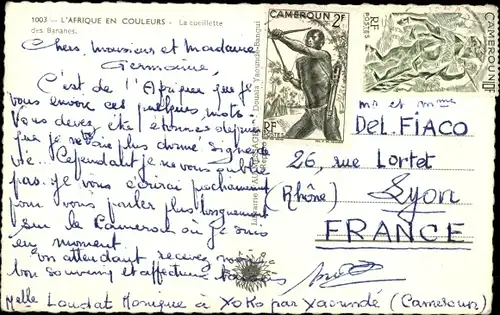 1003 — L'AFRIQUE EN COULEURS - La cueillette
des Bananes.
Chers Monsieur et Madame
Germaine,
C'est de l'Afrique que je
vous envoie ces quelques mots.
Vous devez être étonnés depuis
que je n'ai plus donné signe de
vie. Cependant je ne vous oublie
pas. je vous écrirai prochainement
pour vous parler plus longuement
sur le Cameroun où je suis
en moment
En attendant, recevez mon
bon souvenir et affectueux
Melle Loudat Monique à YoKo par Yaoundé (Cameroun)
CAMEROUN 2F
RF
POSTES
CAMEROUN
RF
POSTES
Douala Yaoundé Bangui
mr et mme
DeL FiACO
26, rue Lortet
(Rhône) Lyon
FRANCE